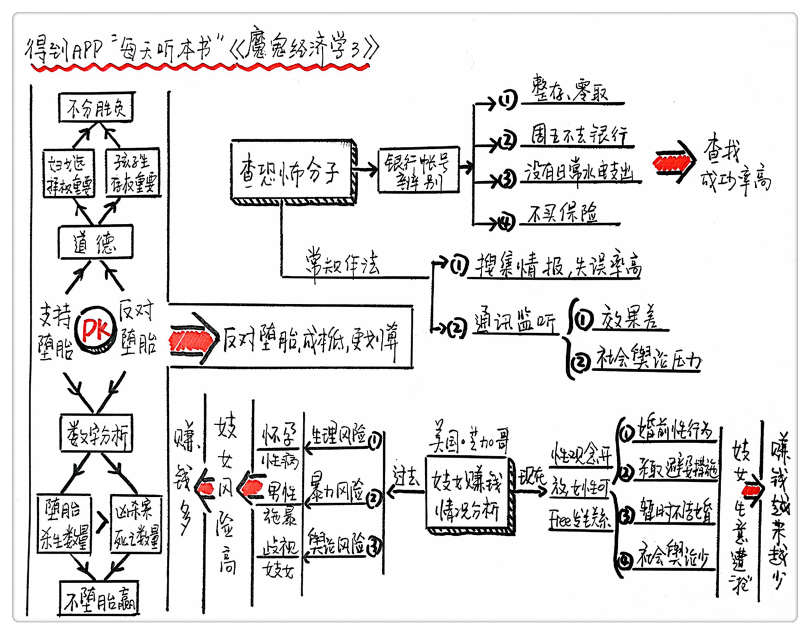 得到APP“每天听本书”《魔鬼经济学3》
不分胜负
妇女选
择权重要
孩子生
存权重要
道德
支持
堕胎
PK
反对
堕胎
数字分析
堕胎
杀生数量
>
凶杀案
死亡数量
不堕胎赢
反对堕胎,成本低,更划算
查恐怖分子
银行帐号
辨别
① 整存、零取
② 周五不去银行
③ 没有日常水电支出
④ 不买保险
查找
成功率高
常规作法
① 搜集情报,失误率高
② 通讯监听
① 效果差
② 社会舆论压力
美国·芝加哥
妓女赚钱
情况分析
过去
生理风险①
暴力风险②
舆论风险③
怀孕
性病
男性
施暴
歧视
妓女
妓女风险高
赚钱多
现在
性观念开
放,女性可
Free发生关系
① 婚前性行为
② 采取避孕措施
③ 暂时不结婚
④ 社会舆论少
妓女生意遭“抢”
赚钱越来越少